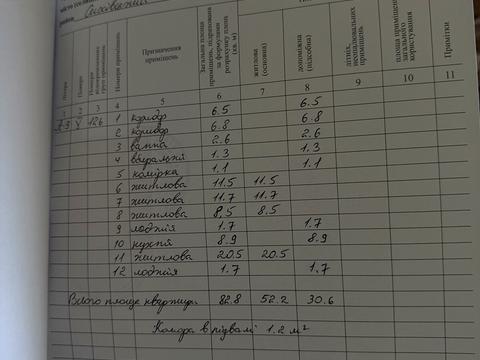 місто (селищ
район Сихівський
Літера
Поверх
Номери відокремлених груп приміщень
Номери приміщень
Призначення приміщень
Загальна площа приміщень, підрахована за формулами розрахунку площ (кв. м)
житлова (основна)
допоміжна (підсобна)
літніх, неопалювальних приміщень
площа приміщень загального користування
Примітки
1 2 3 4 5 6 7 8 9 10 11
А-9 126 1 коридор 6.5 6.5
2 коридор 6.8 6.8
3 ванна 2.6 2.6
4 вбиральня 1.3 1.3
5 комірка 1.1 1.1
6 житлова 11.5 11.5
7 житлова 11.7 11.7
8 житлова 8,5 8.5
9 лоджія 1.7 1.7
10 кухня 8.9 8.9
11 житлова 20.5 20.5
12 лоджія 1.7 1.7
Всього площа квартири 82.8 52.2 30.6
Комора в підвалі 1.2 м²